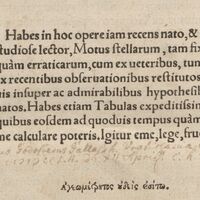 Habes in hoc opere iam recens nato, &
studiose lector, Motus stellarum, tam fix
quàm erraticarum, cum ex ueteribus, tum
ex recentibus obseruationibus restitutos
uis insuper ac admirabilibus hypothesib
natos. Habes etiam Tabulas expeditissim
quibus eosdem ad quoduis tempus quàm
me calculare poteris. Igitur eme, lege, fru
Ἀγεωμέτρητος οὐδεὶς εἰσίτω.